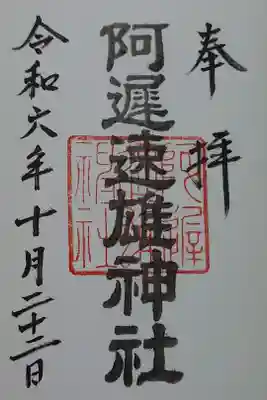 奉拝
阿遲速雄神社
令和六年十月二十二日